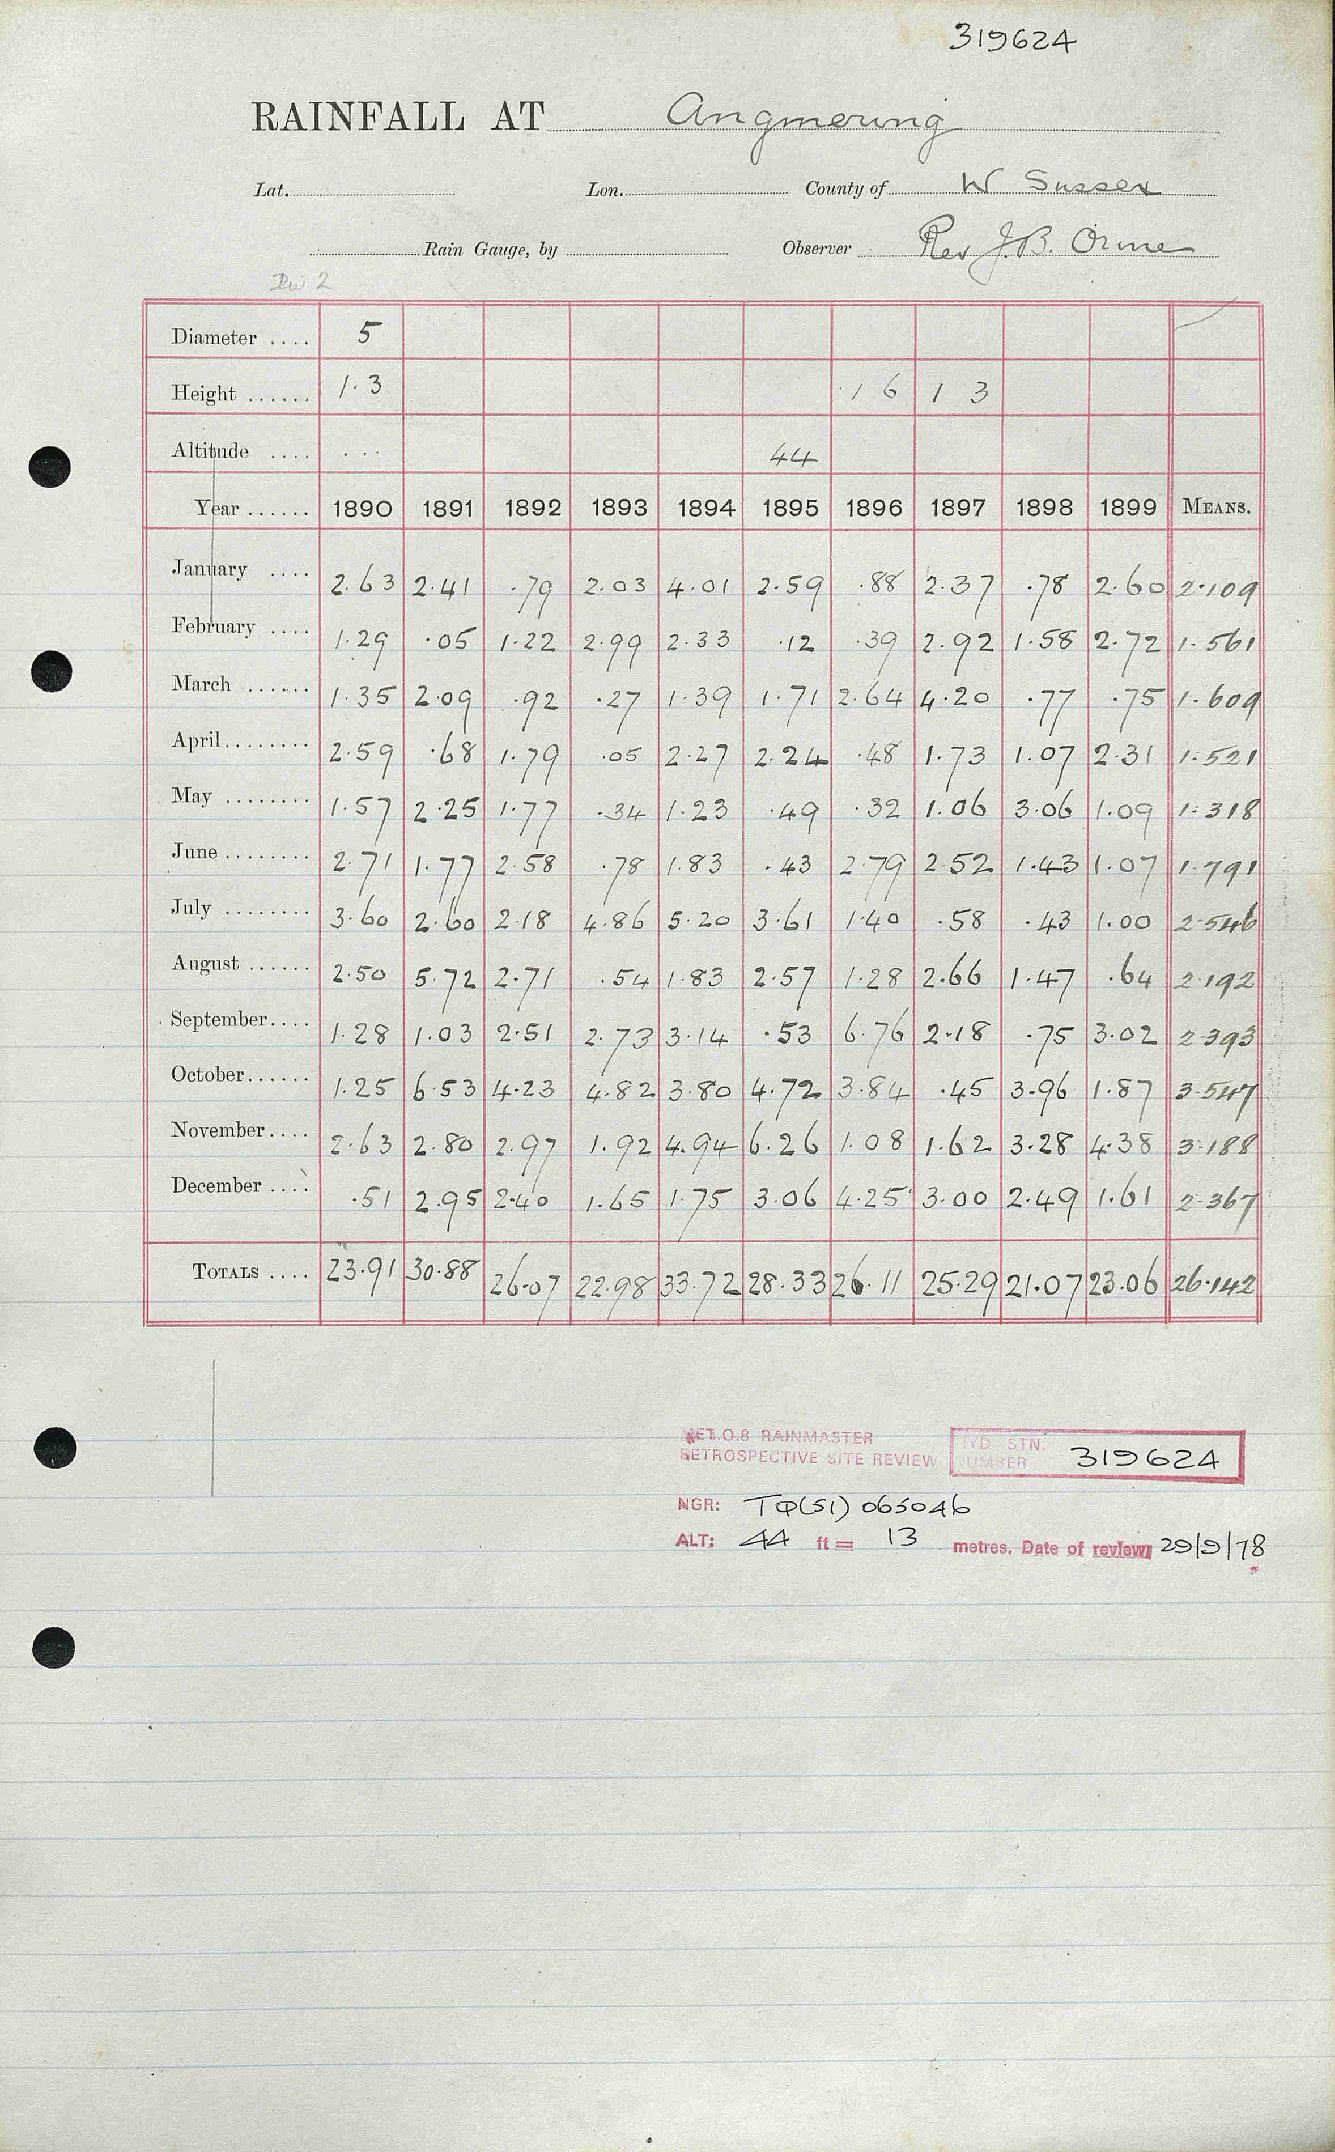 319624
RAINFALL AT Angmering
Lat. Lon. County of W Sussex
Rain Gauge, by Observer Rev J.B. Orme
Diameter .... 5
Height ...... 1.3 1 6 1 3
Altitude .... ... 44
Year ...... 1890 1891 1892 1893 1894 1895 1896 1897 1898 1899 MEANS.
January .... 2.63 2.41 .79 2.03 4.01 2.59 .88 2.37 .78 2.60 2.109
February .... 1.29 .05 1.22 2.99 2.33 .12 .39 2.92 1.58 2.72 1.561
March ...... 1.35 2.09 .92 .27 1.39 1.71 2.64 4.20 .77 .75 1.609
April........ 2.59 .68 1.79 .05 2.27 2.24 .48 1.73 1.07 2.31 1.521
May ........ 1.57 2.25 1.77 .34 1.23 .49 .32 1.06 3.06 1.09 1.318
June ........ 2.71 1.77 2.58 .78 1.83 .43 2.79 2.52 1.43 1.07 1.791
July ........ 3.60 2.60 2.18 4.86 5.20 3.61 1.40 .58 .43 1.00 2.546
August ...... 2.50 5.72 2.71 .54 1.83 2.57 1.28 2.66 1.47 .64 2.192
September.... 1.28 1.03 2.51 2.73 3.14 .53 6.76 2.18 .75 3.02 2.393
October...... 1.25 6.53 4.23 4.82 3.80 4.72 3.84 .45 3.96 1.87 3.547
November.... 2.63 2.80 2.97 1.92 4.94 6.26 1.08 1.62 3.28 4.38 3.188
December .... .51 2.95 2.40 1.65 1.75 3.06 4.25 3.00 2.49 1.61 2.367
TOTALS .... 23.91 30.88 26.07 22.98 33.72 28.33 26.11 25.29 21.07 23.06 26.142
MET.O.8 RAINMASTER
RETROSPECTIVE SITE REVIEW
STN. 319624
NGR: TQ(51) 065046
ALT: 44 ft = 13 metres. Date of review 29/9/78